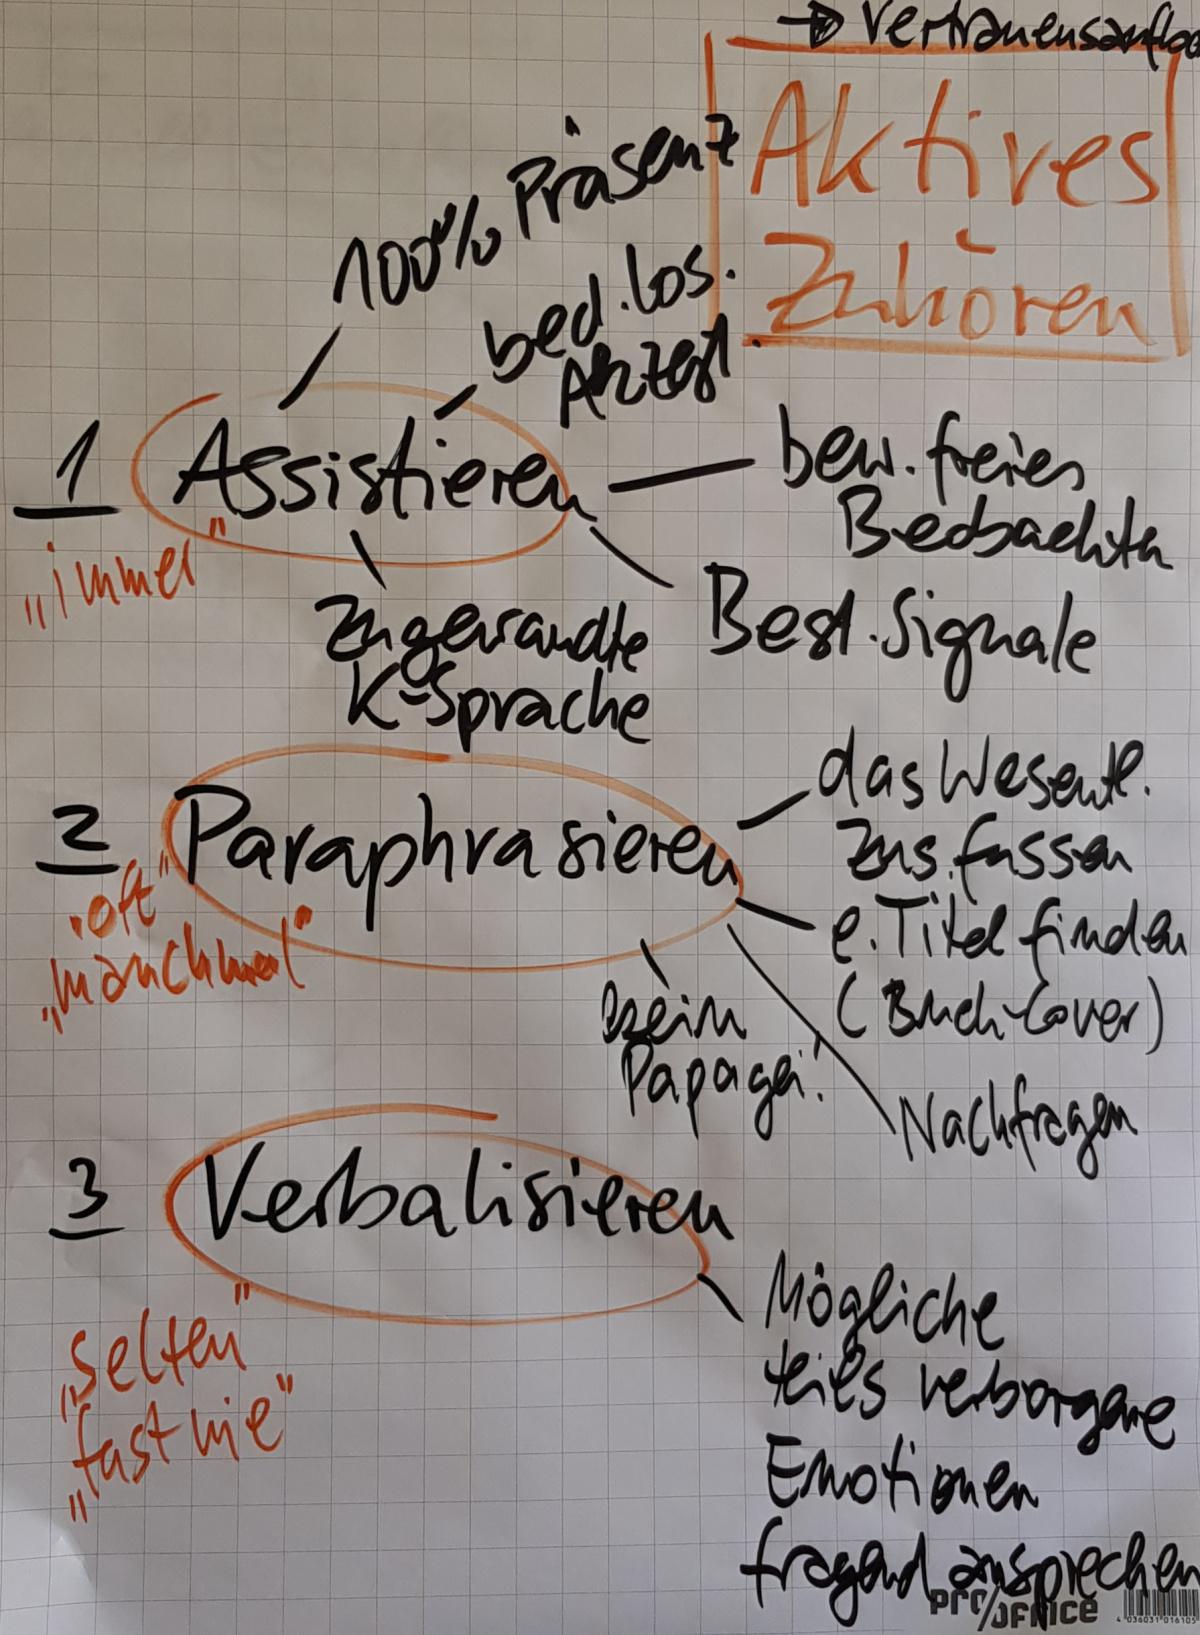 Aktives
Zuhören
100% Präsenz
bed.los.
Akzept.
1 Assistieren
"immer"
bew.freies
Beobachten
Best.Signale
zugewandte
K-Sprache
2 Paraphrasieren
"oft"
"manchmal"
das Wesentl.
zus.fassen
e.Titel finden
(Buch-Cover)
Nachfragen
kein
Papagei!
3 Verbalisieren
"selten"
"fast nie"
Mögliche
teils verborgene
Emotionen
fragend ansprechen
PRO/OFFICE
4 036031 016105